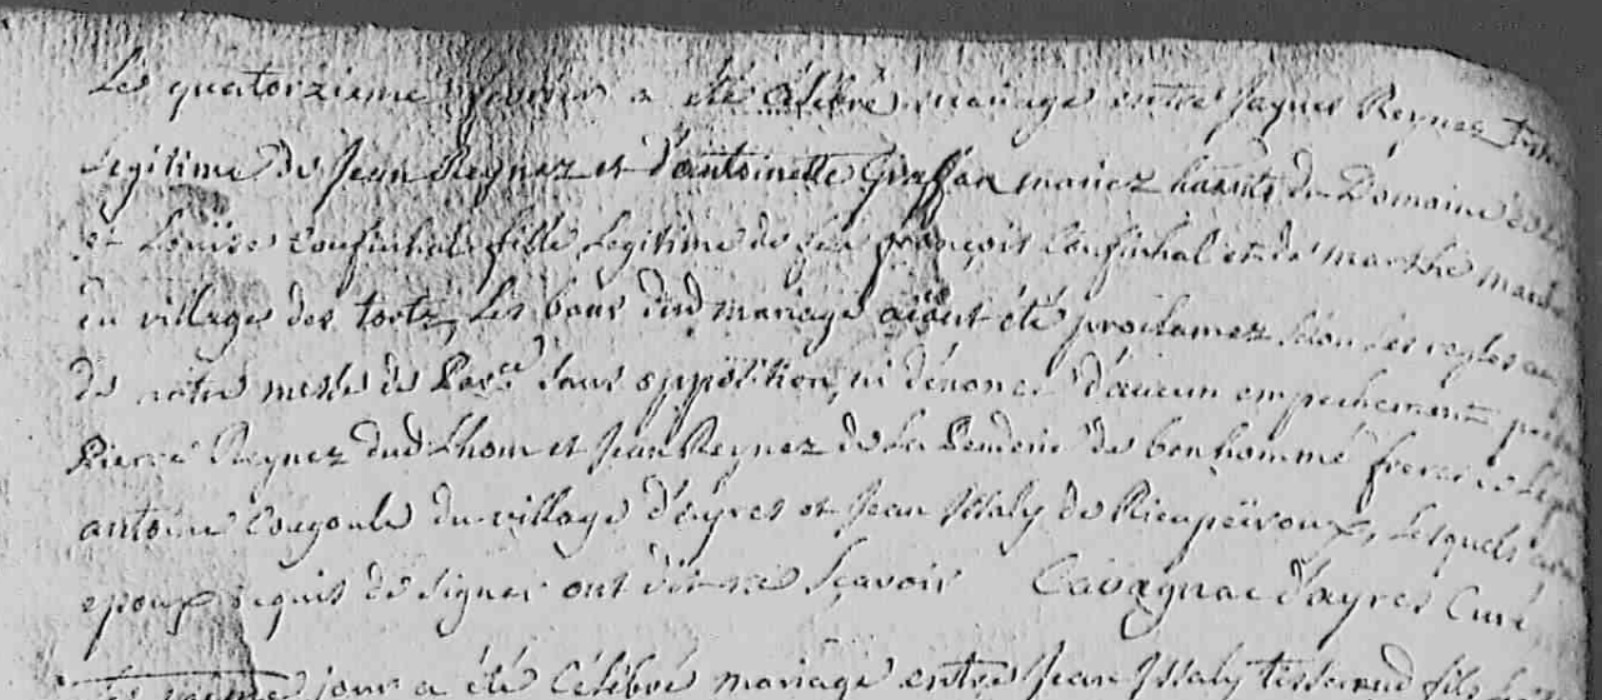 Le quatorzieme fevrier a été célébré mariage entre Jaques Reynez
Legitime de Jean Reynez et d'antoinette Graffan mariez habits du Domaine
et Louise Couffinhal fille Legitime de feu françois Couffinhal et de marthe
du village des tortz, Les bans dud mariage aïant été proclamez selon les regles au
de notre messe de Parce sans opposition, ni dénonce d'aucun empechement
Pierre Reynez dud Lhom et Jean Reynez de La Penderie de bonhomme freres
antoine Cougoule du village d'ayres et Jean Issaly de Rieupeïroux, Lesquels
epoux requis de signer ont dit ne sçavoir Cavagnac d'ayres Curé
jour a été célébré mariage entre Jean Issaly tisserand fils